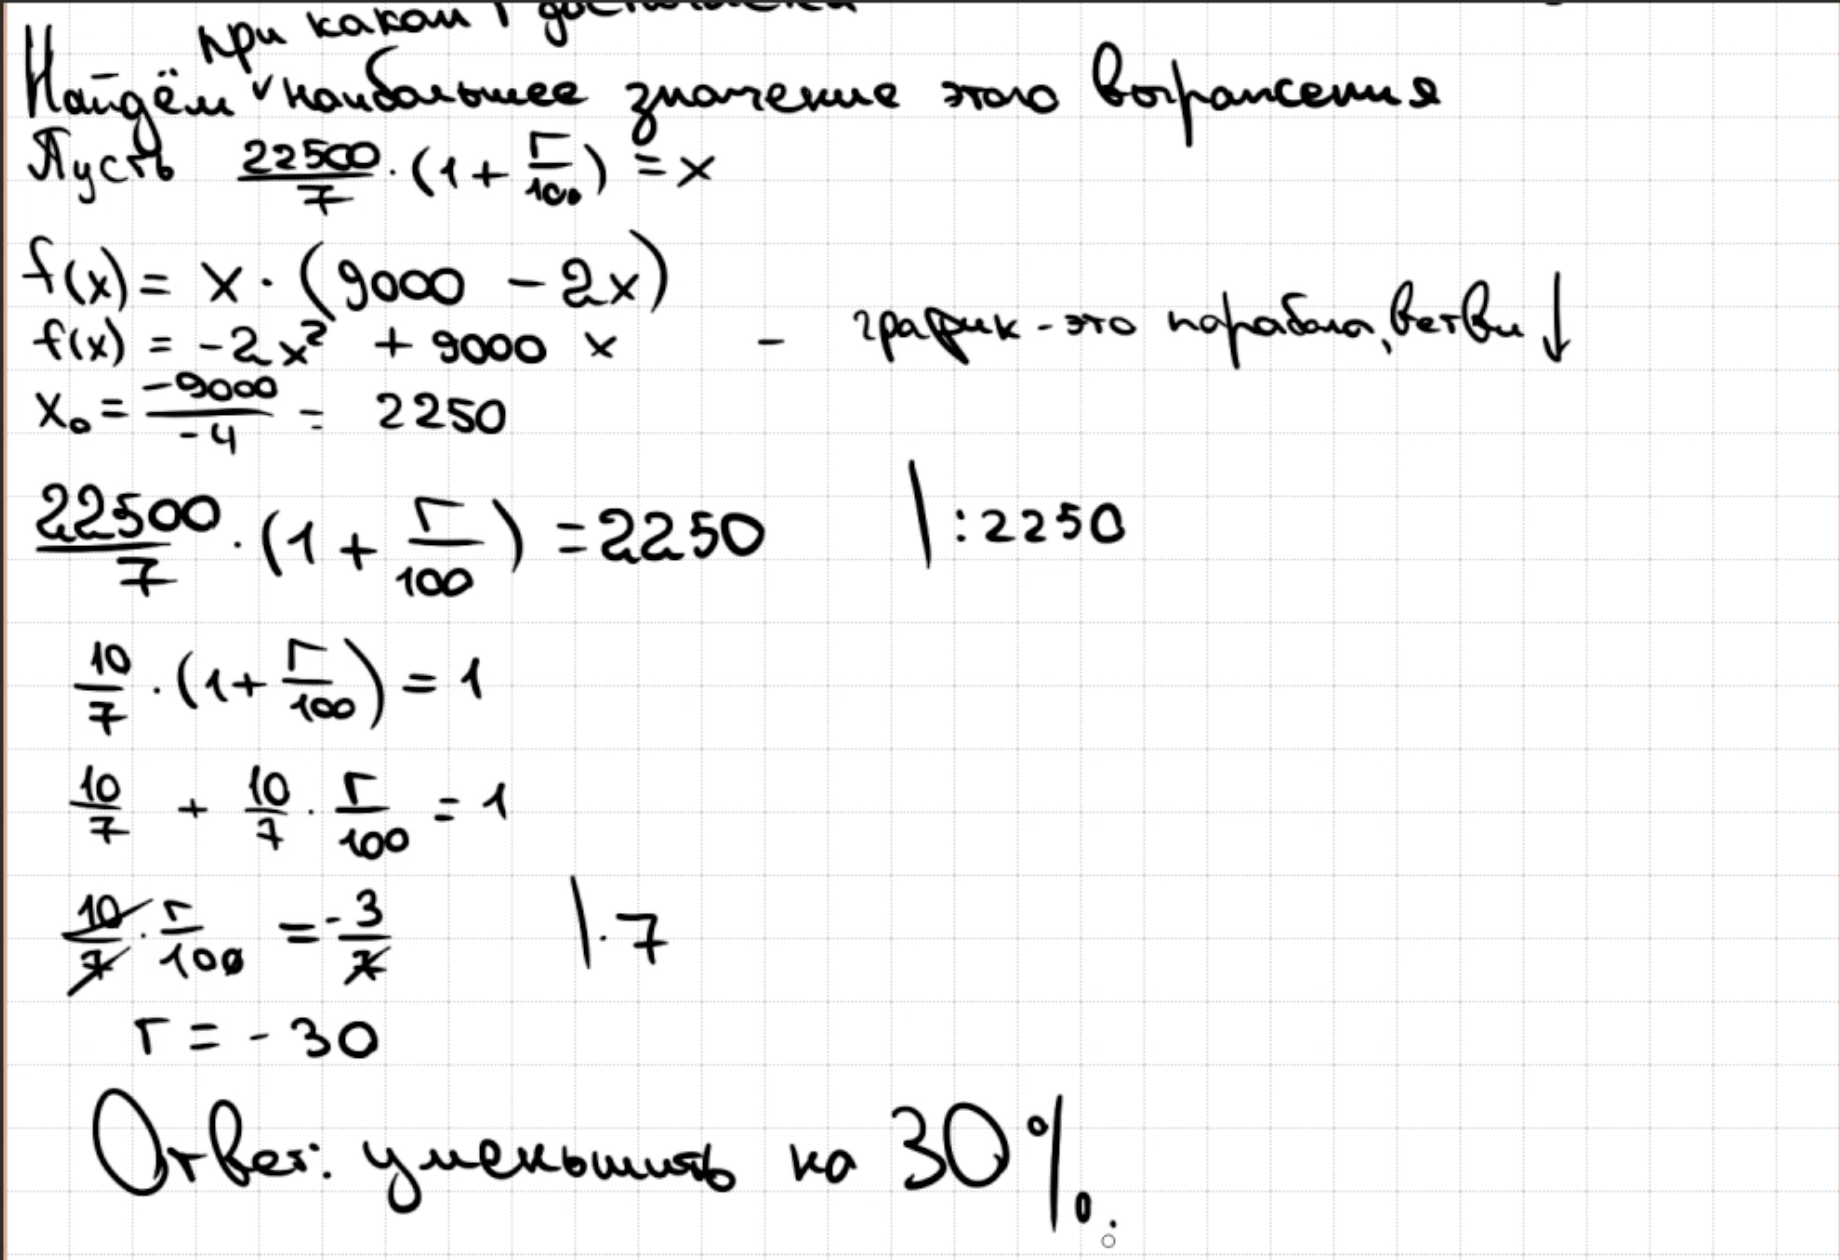 при каком r достигается
Найдём наибольшее значение этого выражения
Пусть 22500/7 · (1 + r/100) = x
f(x) = x · (9000 - 2x)
f(x) = -2x² + 9000 x - график - это парабола, ветви ↓
x₀ = -9000/-4 = 2250
22500/7 · (1 + r/100) = 2250 | : 2250
10/7 · (1 + r/100) = 1
10/7 + 10/7 · r/100 = 1
10/7 · r/100 = -3/7 | · 7
r = - 30
Ответ: уменьшить на 30%.